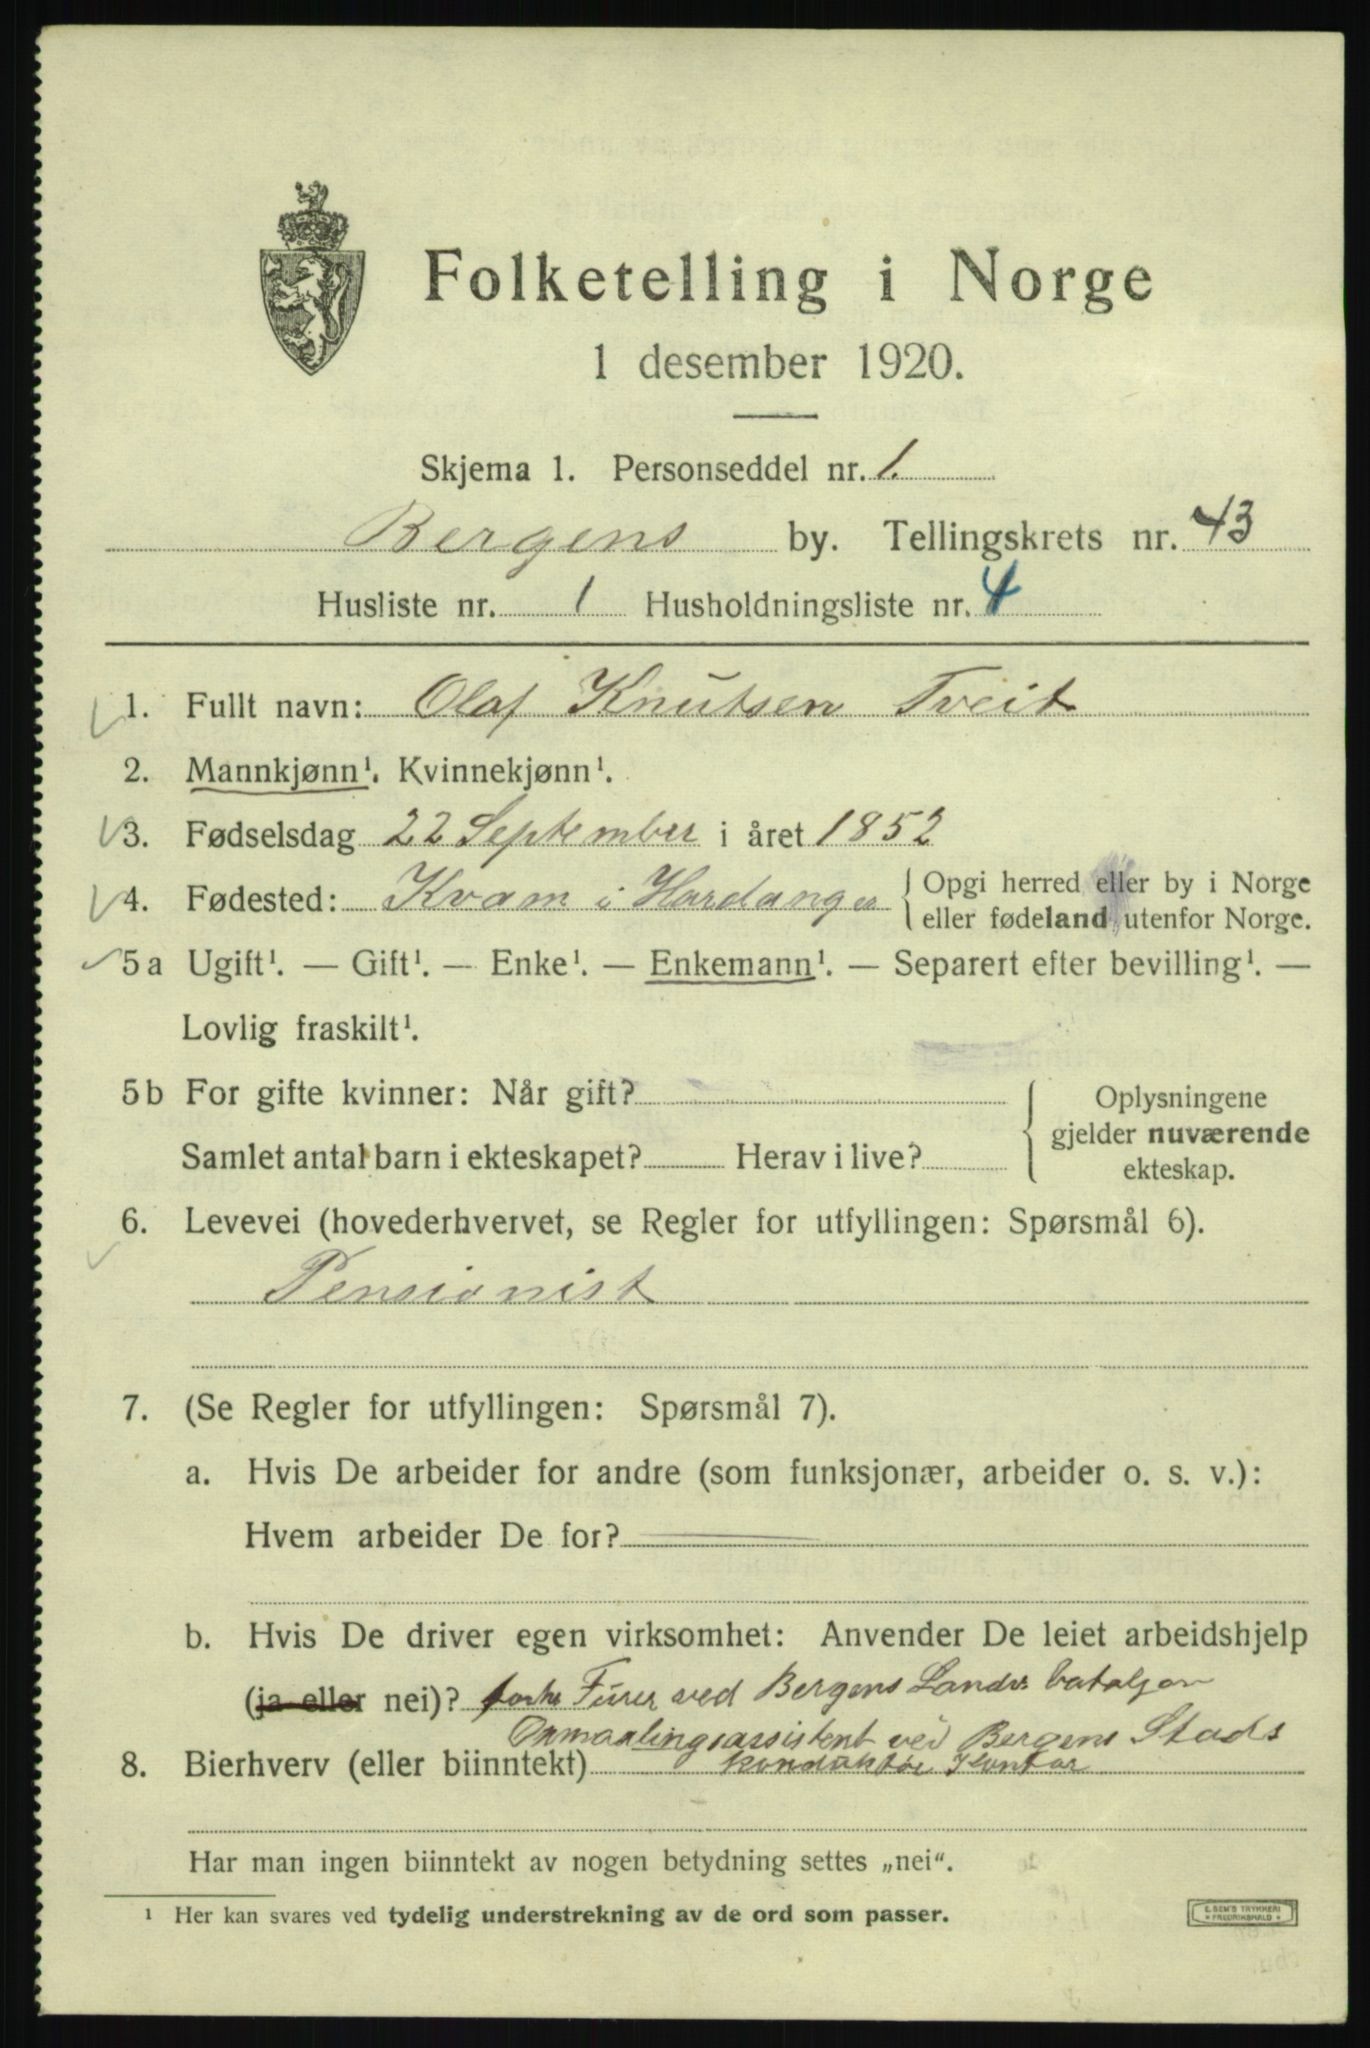 Folketelling i Norge
1 desember 1920.
Skjema 1. Personseddel nr. 1.
Bergens by. Tellingskrets nr. 43
Husliste nr. 1 Husholdningsliste nr. 4
1. Fullt navn: Olaf Knutsen Tveit
2. Mannkjønn¹. Kvinnekjønn¹.
3. Fødselsdag 22 September i året 1852
4. Fødested: Kvam i Hardanger { Opgi herred eller by i Norge
eller fødeland utenfor Norge.
5a Ugift¹. — Gift¹. — Enke¹. — Enkemann¹. — Separert efter bevilling¹. —
Lovlig fraskilt¹.
5b For gifte kvinner: Når gift?
Samlet antal barn i ekteskapet? Herav i live?
{ Oplysningene
gjelder nuværende
ekteskap.
6. Levevei (hovederhvervet, se Regler for utfyllingen: Spørsmål 6).
Pensionist
7. (Se Regler for utfyllingen: Spørsmål 7).
a. Hvis De arbeider for andre (som funksjonær, arbeider o. s. v.):
Hvem arbeider De for?
b. Hvis De driver egen virksomhet: Anvender De leiet arbeidshjelp
(ja eller nei)? Furer ved Bergens Lands bataljon
Opmaalingsassistent ved Bergens Stads
8. Bierhverv (eller biinntekt) konduktør Kontor
Har man ingen biinntekt av nogen betydning settes „nei“.
¹ Her kan svares ved tydelig understrekning av de ord som passer.
E. SEM'S TRYKKERI
FREDRIKSHALD